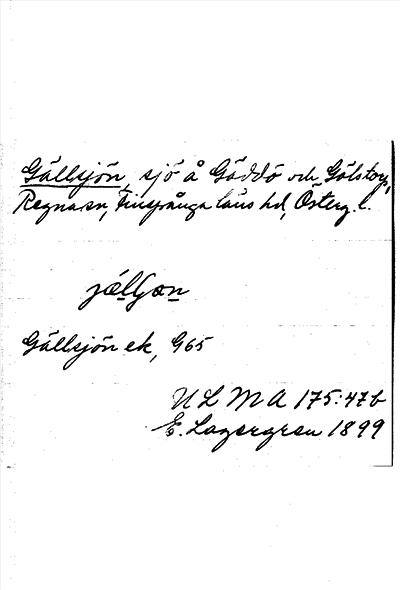 Gällsjön, sjö å Gäddö och Gölstorp,
Regna sn, Finspånga läns hd, Österg. l.
Gällsjön ek, G65
ULMA 175:47b
E. Lagergren 1899